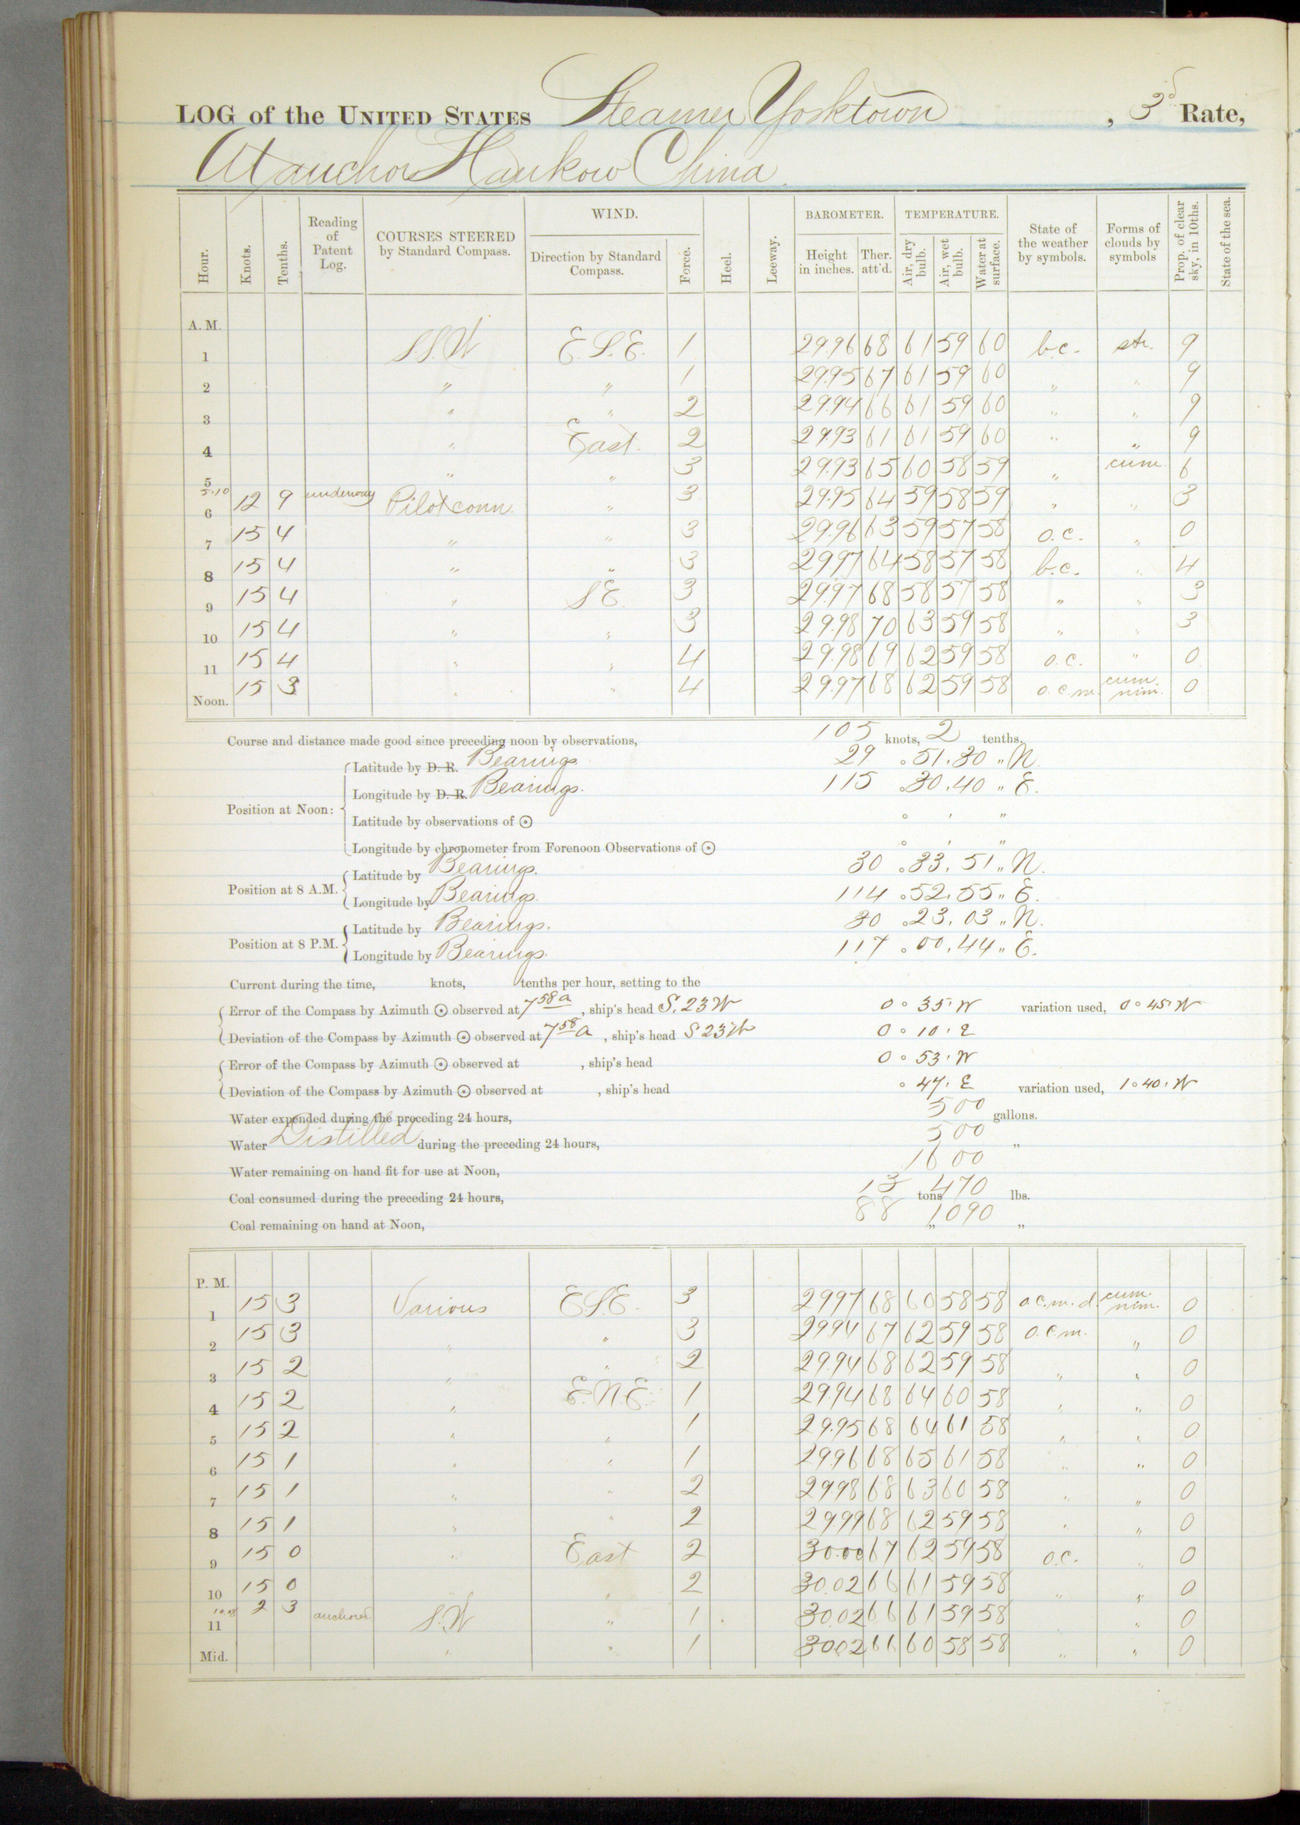 LOG of the UNITED STATES Steamer Yorktown, 3d Rate,
At anchor Hankow China.
Hour. Knots. Tenths. Reading of Patent Log. COURSES STEERED by Standard Compass. WIND. Direction by Standard Compass. Force. Heel. Leeway. BAROMETER. Height in inches. Ther. att'd. TEMPERATURE. Air, dry bulb. Air, wet bulb. Water at surface. State of the weather by symbols. Forms of clouds by symbols Prop. of clear sky, in 10ths. State of the sea.
A. M.
1 S.S.W E.S.E. 1 29.96 68 61 59 60 b.c. str. 9
2 " " 1 29.95 67 61 59 60 " " 9
3 " " 2 29.94 66 61 59 60 " " 9
4 " East. 2 29.93 61 61 59 60 " " 9
5 " " 3 29.93 65 60 58 59 " cum. 6
5.10
6 12 9 underway Pilot conn " 3 29.95 64 59 58 59 " " 3
7 15 4 " " 3 29.96 63 59 57 58 o.c. " 0
8 15 4 " " 3 29.97 64 58 57 58 b.c. " 4
9 15 4 " SE. 3 29.97 68 58 57 58 " " 3
10 15 4 " " 3 29.98 70 63 59 58 " " 3
11 15 4 " " 4 29.98 69 62 59 58 o.c. " 0
Noon. 15 3 " " 4 29.97 68 62 59 58 o.c.m. cum. nim. 0
Course and distance made good since preceding noon by observations, 105 knots, 2 tenths.
Latitude by D. R. Bearings 29 ° 51 ' 30 " N.
Position at Noon: Longitude by D. R. Bearings. 115 ° 30 ' 40 " E.
Latitude by observations of ⊙ ° ' "
Longitude by chronometer from Forenoon Observations of ⊙ ° ' "
Position at 8 A.M. Latitude by Bearings. 30 ° 33 ' 51 " N.
Longitude by Bearings. 114 ° 52 ' 55 " E.
Position at 8 P.M. Latitude by Bearings. 30 ° 23 ' 03 " N.
Longitude by Bearings. 117 ° 00 ' 44 " E.
Current during the time, knots, tenths per hour, setting to the
Error of the Compass by Azimuth ⊙ observed at 7 58 a, ship's head S. 23 W 0 ° 35 ' W variation used, 0 ° 45 ' W
Deviation of the Compass by Azimuth ⊙ observed at 7 58 a, ship's head S 23 W 0 ° 10 ' E
Error of the Compass by Azimuth ⊙ observed at , ship's head 0 ° 53 ' W
Deviation of the Compass by Azimuth ⊙ observed at , ship's head ° 47 ' E variation used, 1 ° 40 ' W
Water expended during the preceding 24 hours, 500 gallons.
Water Distilled during the preceding 24 hours, 500 "
Water remaining on hand fit for use at Noon, 1600
Coal consumed during the preceding 24 hours, 13 tons 470 lbs.
Coal remaining on hand at Noon, 88 " 1090 "
P. M.
1 15 3 Various E.S.E. 3 29.97 68 60 58 58 o.c.m.d. cum. nim. 0
2 15 3 " " 3 29.94 67 62 59 58 o.c.m. " 0
3 15 2 " " 2 29.94 68 62 59 58 " " 0
4 15 2 " E.N.E. 1 29.94 68 64 60 58 " " 0
5 15 2 " " 1 29.95 68 64 61 58 " " 0
6 15 1 " " 1 29.96 68 65 61 58 " " 0
7 15 1 " " 2 29.98 68 63 60 58 " " 0
8 15 1 " " 2 29.99 68 62 59 58 " " 0
9 15 0 " East 2 30.00 67 62 59 58 o.c. " 0
10 15 0 " 2 30.02 66 61 59 58 " " 0
11 2 3 anchored S.W " 1 30.02 66 61 59 58 " " 0
Mid. " " 1 30.02 66 60 58 58 " " 0